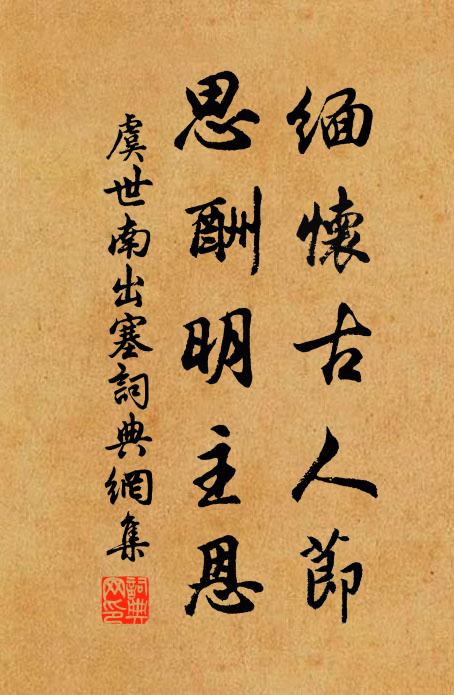 緬懷古人節
思酬明主恩
虞世南出塞詞典網集
詞典
網印